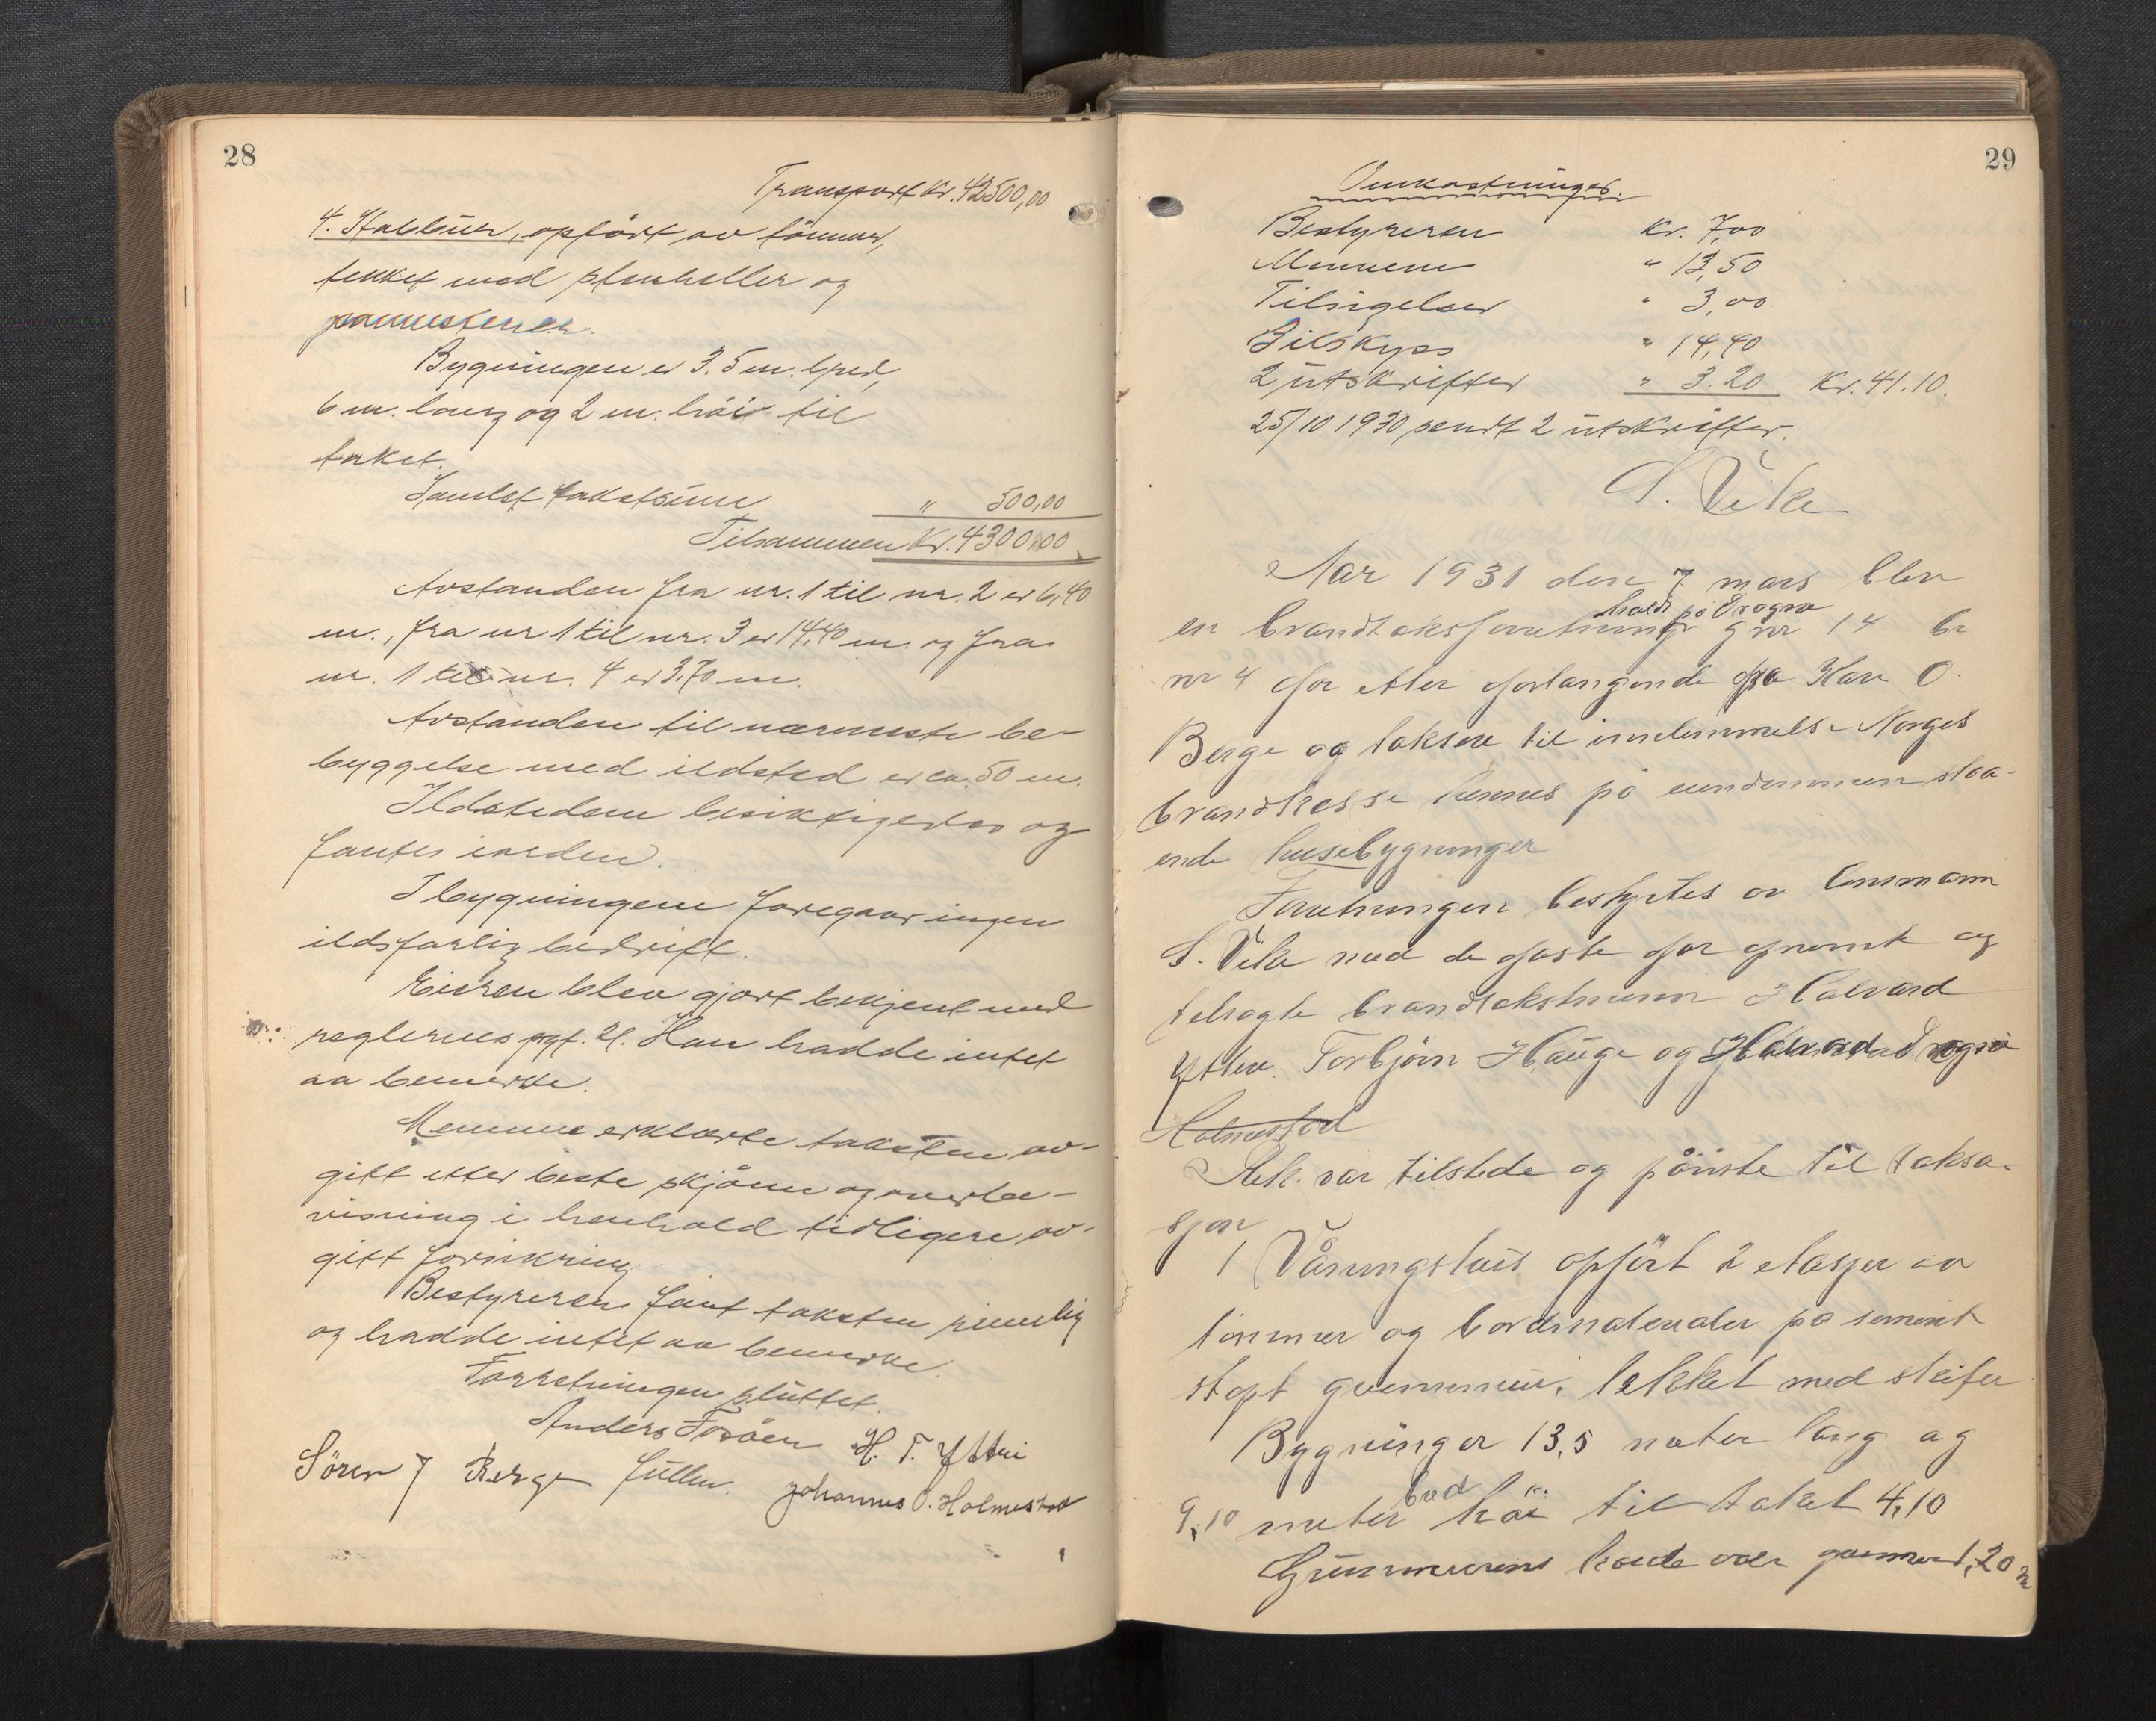 28
Transport kr. 42500,00
4. Stabbur, opført av tömmer,
tekket med stenheller og
pannestener.
Bygningen er 3.5 m. bred,
6 m. lang og 2 m. höi til
taket.
Samlet takstsum " 500,00
Tilsammen Kr. 4300,00
Avstanden fra nr. 1 til nr. 2 er 6,40
m., fra nr 1 til nr. 3 er 14,40 m. og fra
nr. 1 til nr. 4 er 3,70 m.
Avstanden til nærmeste be-
byggelse med ildsted er ca. 50 m.
Ildstedene besiktigedes og
fantes iorden.
I bygningene foregaar ingen
ildsfarlig bedrift.
Eieren blev gjort bekjent med
reglernes pgf. 21. Han hadde intet
aa bemerke.
Mennene erklærte taksten av-
gitt etter beste skjönn og overbe-
visning i henhold tidligere av-
gitt forsikring.
Bestyreren fant taksten rimelig
og hadde intet aa bemerke.
Forretningen sluttet.
Anders Fosöen H. T. Ytri
Sören J Berge Johannes O. Holmestad
29
Omkostninger.
Bestyreren Kr. 7,00
Mennene " 13,50
Tilsigelser " 3,00
Bilskyss " 14,40
2 utskrifter " 3.20 Kr. 41.10.
25/10 1930 sendt 2 utskrifter.
S. Vik
Aar 1931 den 7 mars blev
holdt på Drogsv
en brandtaksforretning gnr 14 br
nr 4 for etter forlangende fra Kare O.
Berge og taksere til innlemmelse Norges
brandkasse på eiendommen staa-
ende husebygninger
Forretningen bestyrtes av lensmann
S. Vik med de faste for og
brandtakstmenn Halvard
Torbjörn Hauge og Halvard
Holmestad
Rek. var tilstede og påviste til taksa-
sjon
1 Våningshus opfört 2 etasjer av
tömmer og bordmaterialer på sement
stöpt grunnmur, tekket med skifer
Bygninger 13,5 meter lang og
bred
9,10 meter höi til taket 4,10
Grunnmurens höide over 1,20 m